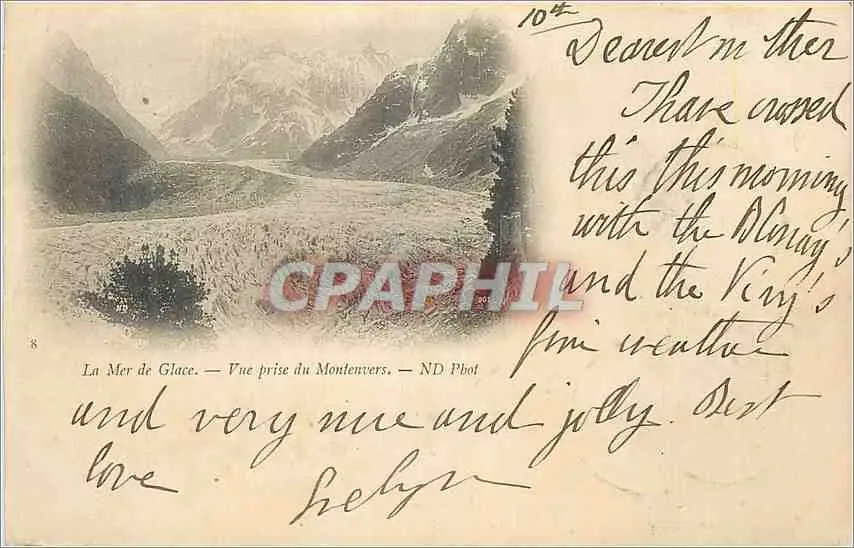 10th
Dearest mother
I have crossed
this this morning
with the Blonay's
and the
fine weather
and very nice and jolly. Best
love Evelyn
CPAPHIL
8
La Mer de Glace. — Vue prise du Montenvers. — ND Phot